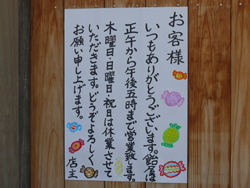 お客様
いつもありがとうございます。飴屋は
正午から午後五時まで営業致します。
木曜日・日曜日・祝日は休業させて
いただきます。どうぞよろしく
お願い申し上げます。
店主